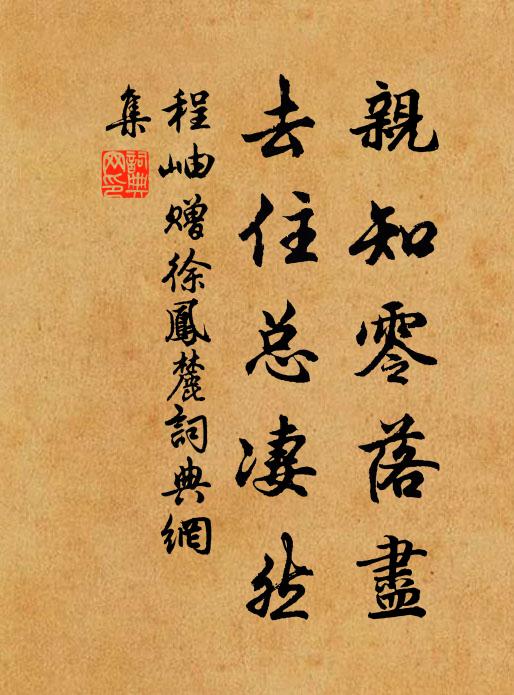 親知零落盡
去住总凄然
程岫赠徐鳳麓詞典網
集
詞典
网印